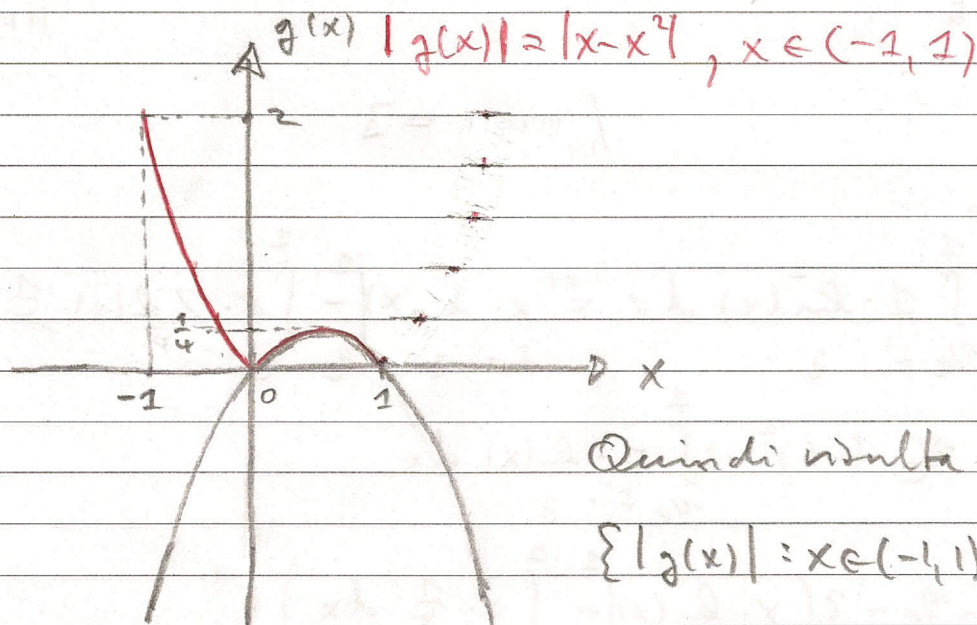 g(x) |g(x)| = |x-x²|, x ∈ (-1, 1)
2
1/4
-1 0 1 x
Quindi risulta
{|g(x)| : x ∈ (-1, 1)